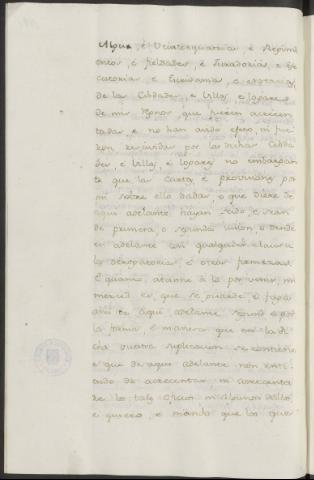 Alguª, é Veintequatrias é Regimi
entos, é fieldades, é Juradorias, é Exe
cutorias é Escrivanias, é
de las Cibdades, é Villas, é logares
de mis Regnos, que fueren acrecen
tadas, é no han avido efeto, ni fue
ron recividas por las dichas Cibda
des, é Villas, é logares no embargan
te que las Cartas é provisiones por
mi sobre ello dadas, o que diere de
aqui adelante, hayan seido, e sean
de primera, o segunda iusion, o dende
en adelante con qualesquier clausu
las derogatorias é otras firmezas
E quanto atanne á lo por venir, mi
merced es, que se guarde, é faga
ansi de aqui adelante segund é por
la forma, é manera que en la di
cha quarta suplicacion se contiene
é que de aqui adelante non enti
endo de acrecentar, ni acrecenta
de los tales oficios ni algunos dellos
é quiero, é mando que los que